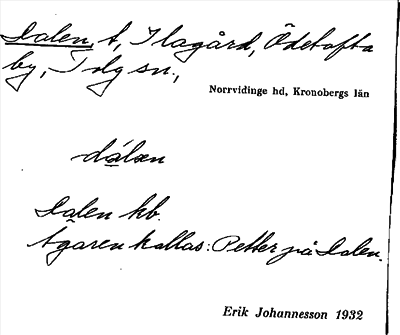 Dalen, t, Ilagård, Ödetofta
by, Tolg sn.,
Norrvidinge hd, Kronobergs län
dálæn
Dalen kb.
Ägaren kallas: Petter på Dalen.
Erik Johannesson 1932